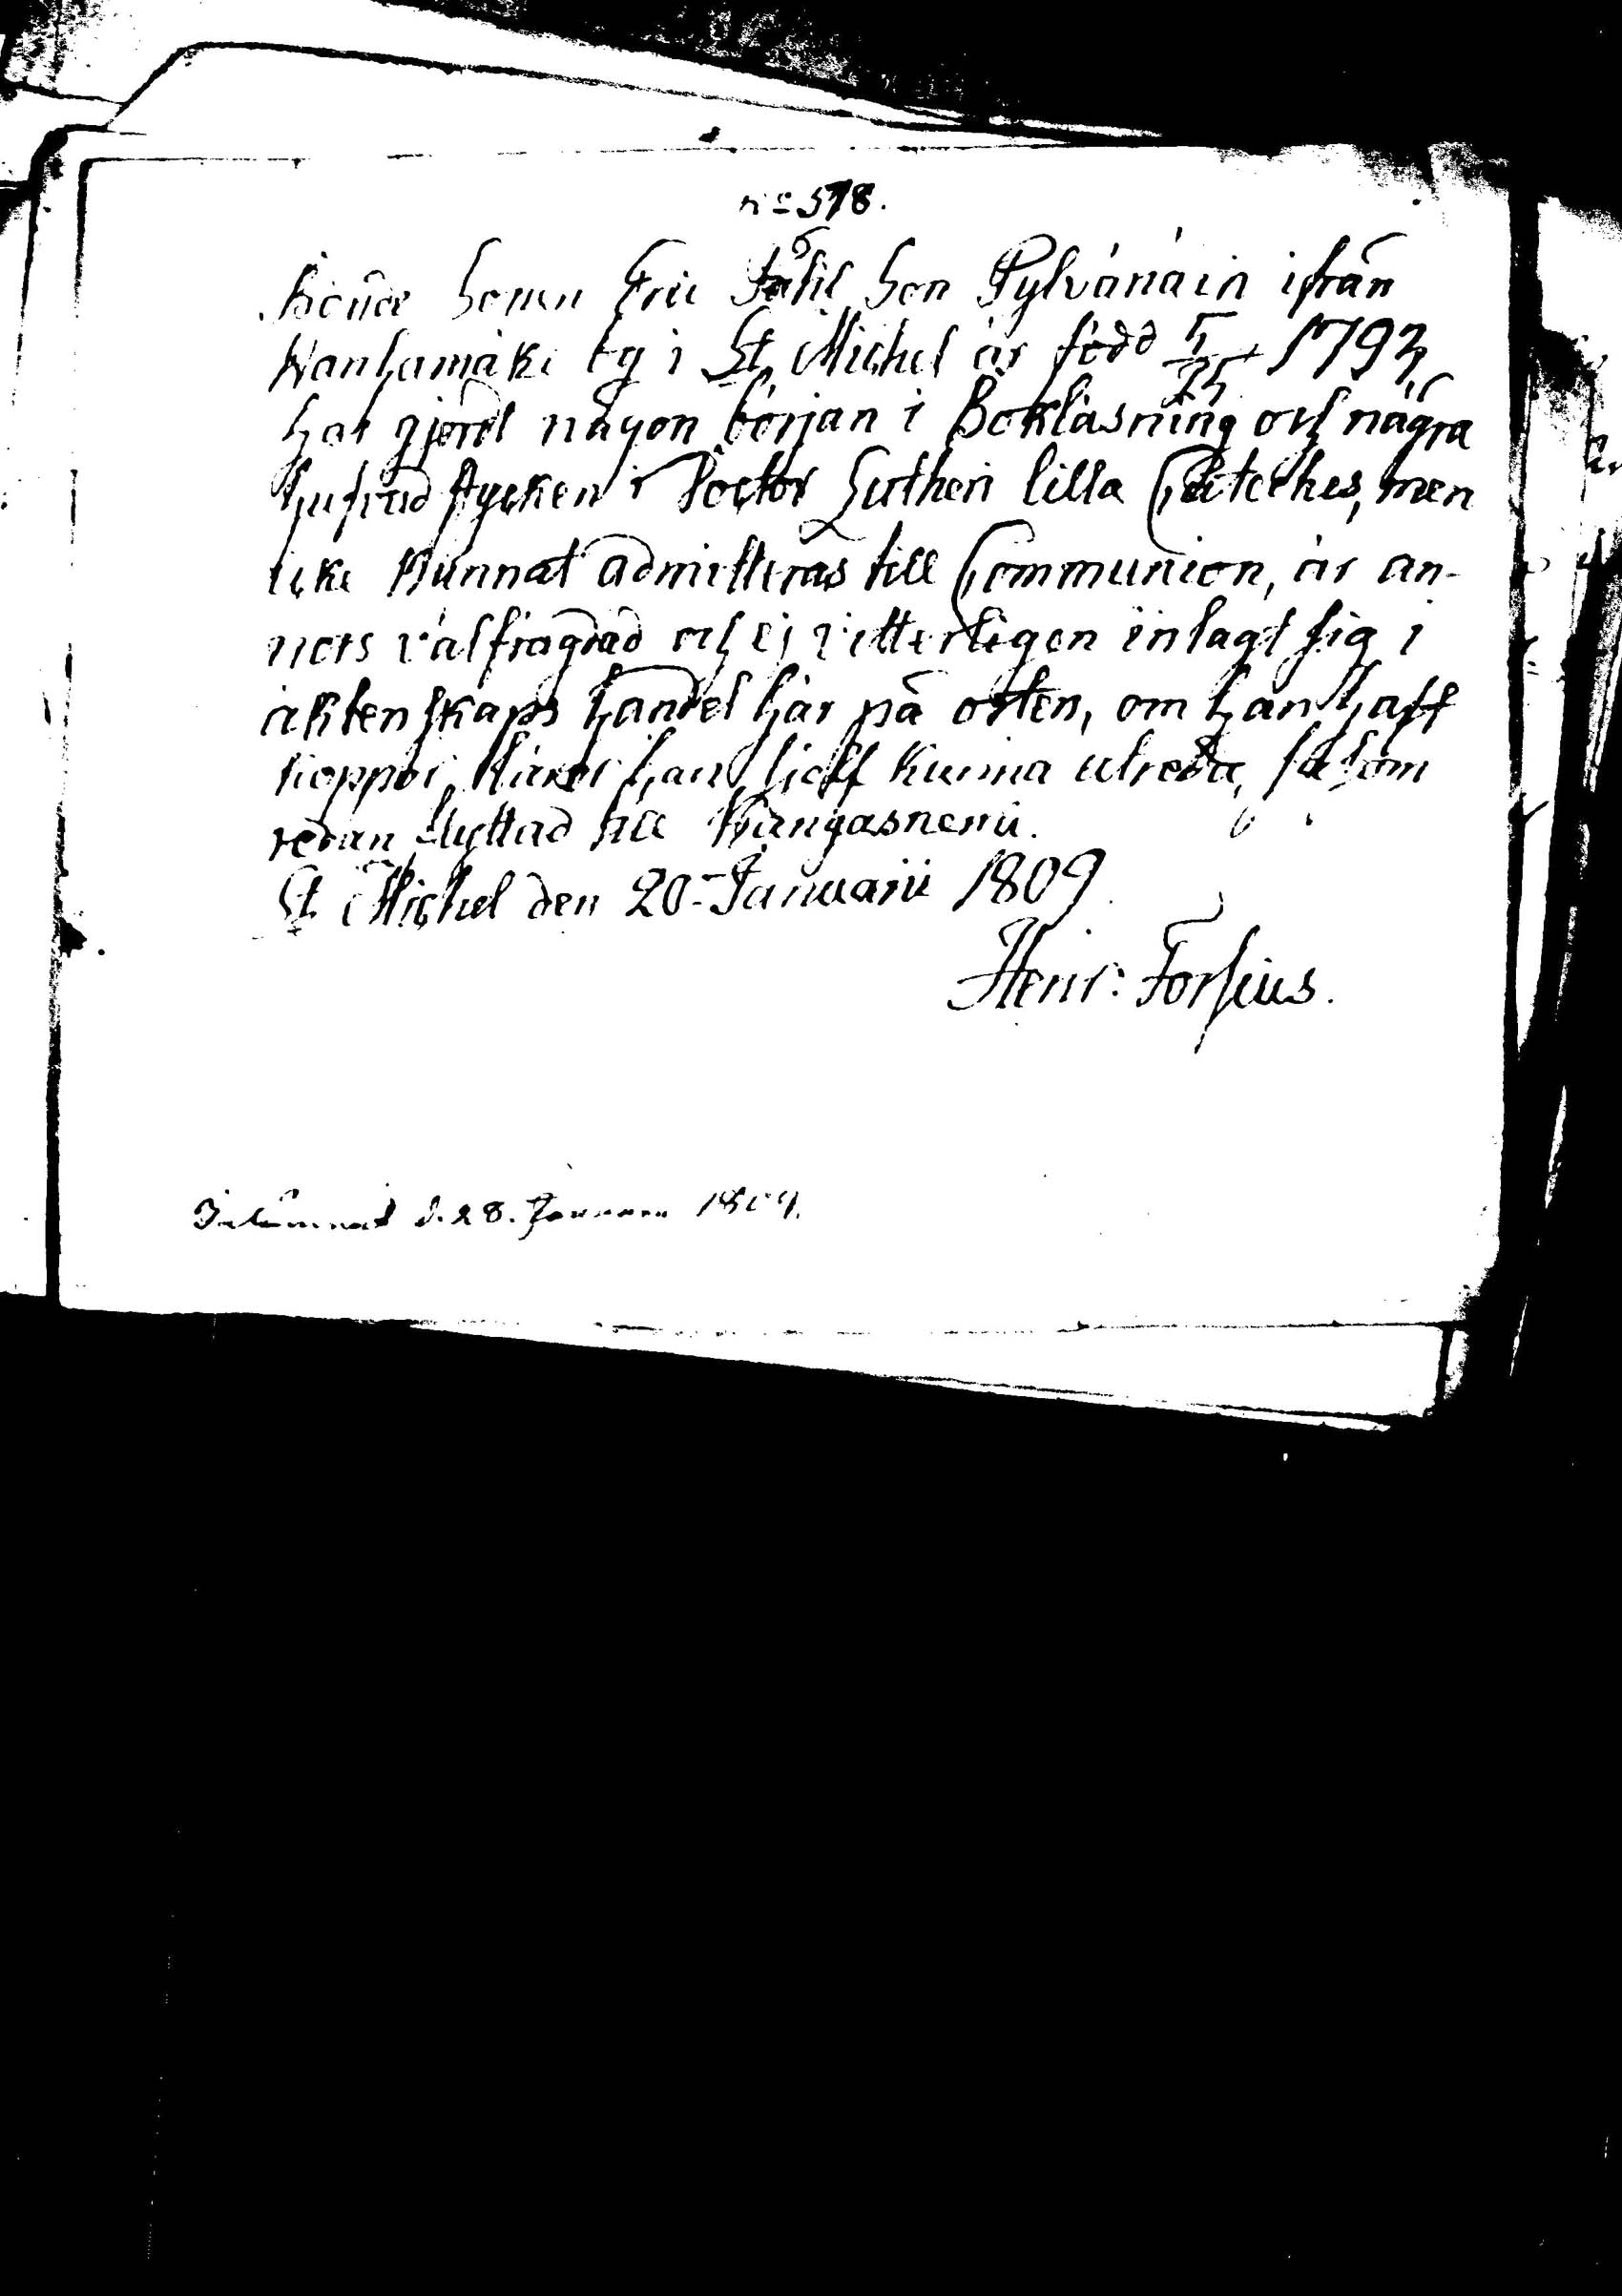 no 578.
Bonde Sonen Eric Påhl Son Pylvänäin ifrån
Wanhamäki by i St Michel är född 5/25 1793,
har gjordt någon början i Bokläsning och några
hufvud stycken i Doctor Lutheri lilla Cateches, men
icke kunnat admitteras till Communion, är an-
nors välfrägdad och ej vitterligen inlagt sig i
äktenskaps handel här på orten, om han haft
koppor, lärer han sjelf kunna utreda, såsom
redan flyttad till Kangasnemi.
St Michel den 20 Januarii 1809
Henr: Forsius.
Inlemnad d. 28. Januarii 1809.